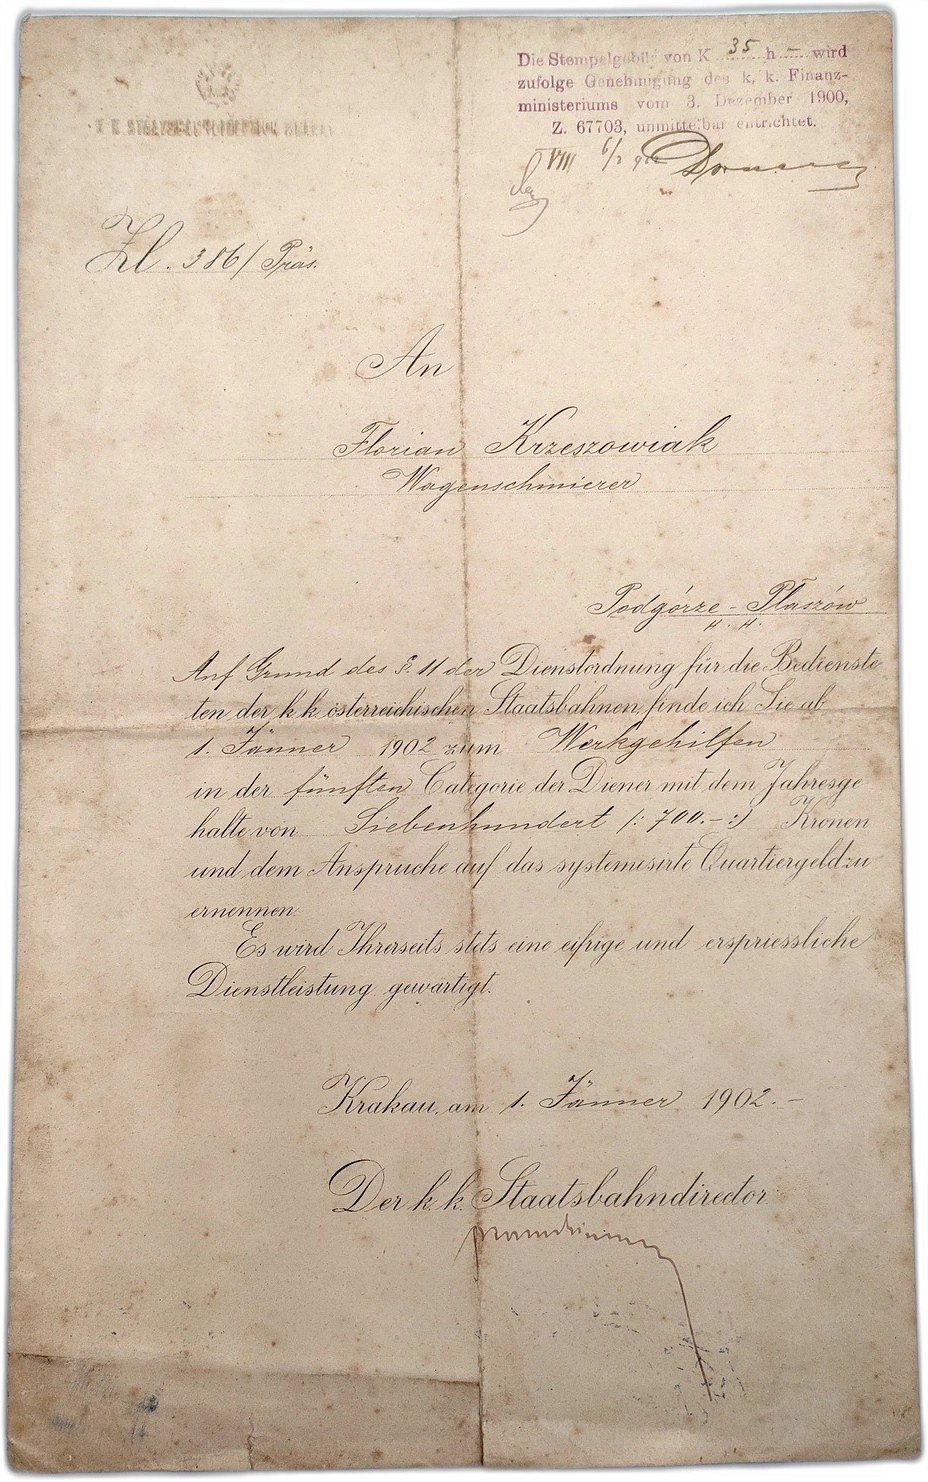 Die Stempelgebühr von K 35 h – wird
zufolge Genehmigung des k. k. Finanz-
ministeriums vom 3. Dezember 1900,
Z. 67703, unmittelbar entrichtet.
VIII
Zl. 386/Präs.
An
Florian Krzeszowiak
Wagenschmierer
Podgórze - Płaszów
Auf Grund des §. 11 der Dienstordnung für die Bedienste
ten der k k österreichischen Staatsbahnen finde ich Sie ab
1. Jänner 1902 zum Werkgehilfen
in der fünften Categorie der Diener mit dem Jahresge
halte von Siebenhundert /: 700.– :/ Kronen
und dem Anspruche auf das systemesirte Quartiergeld zu
ernennen.
Es wird Ihrerseits stets eine eifrige und erspriessliche
Dienstleistung gewärtigt.
Krakau, am 1. Jänner 1902. –
Der k. k. Staatsbahndirector